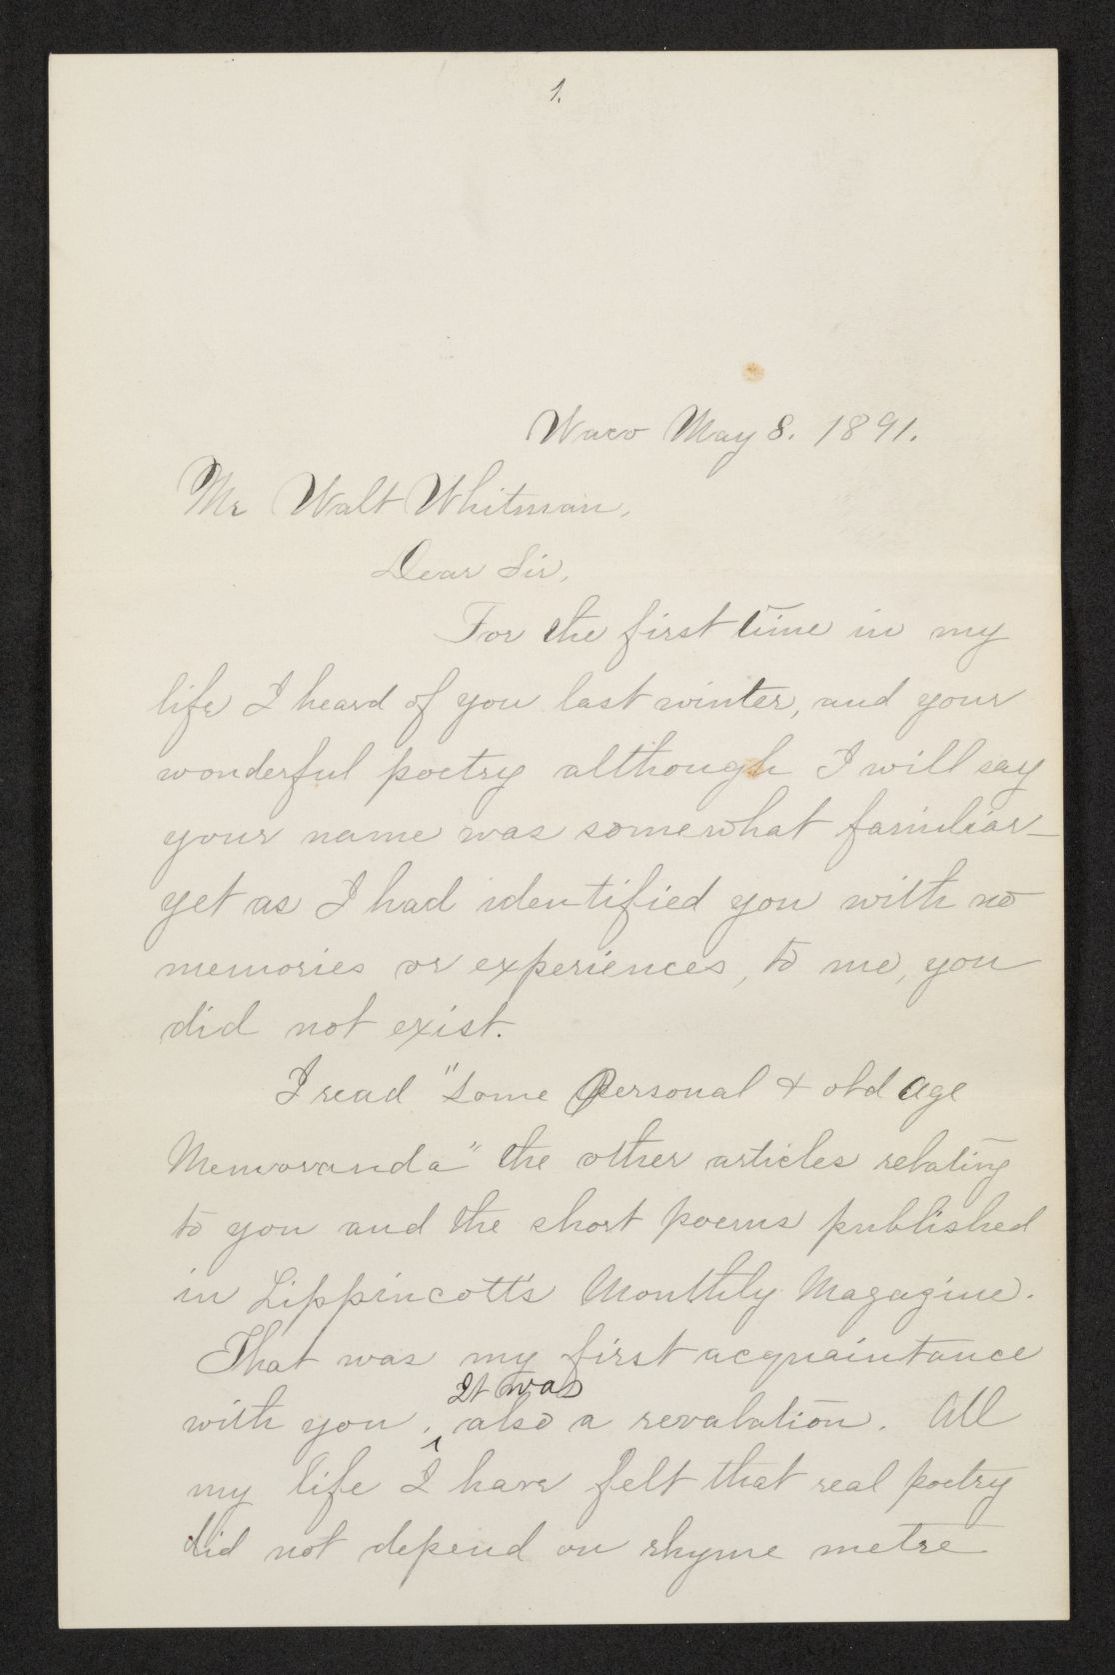 1.
Waco May 8. 1891.
Mr Walt Whitman,
Dear Sir,
For the first time in my
life I heard of you last winter, and your
wonderful poetry although I will say
your name was somewhat familiar—
yet as I had identified you with no
memories or experiences, to me, you
did not exist.
I read "Some Personal & old age
Memoranda" the other articles relating
to you and the short poems published
in Lippincott's Monthly Magazine.
That was my first acquaintance
It was
with you . ^ also a revalation. All
my life I have felt that real poetry
did not depend on rhyme metre